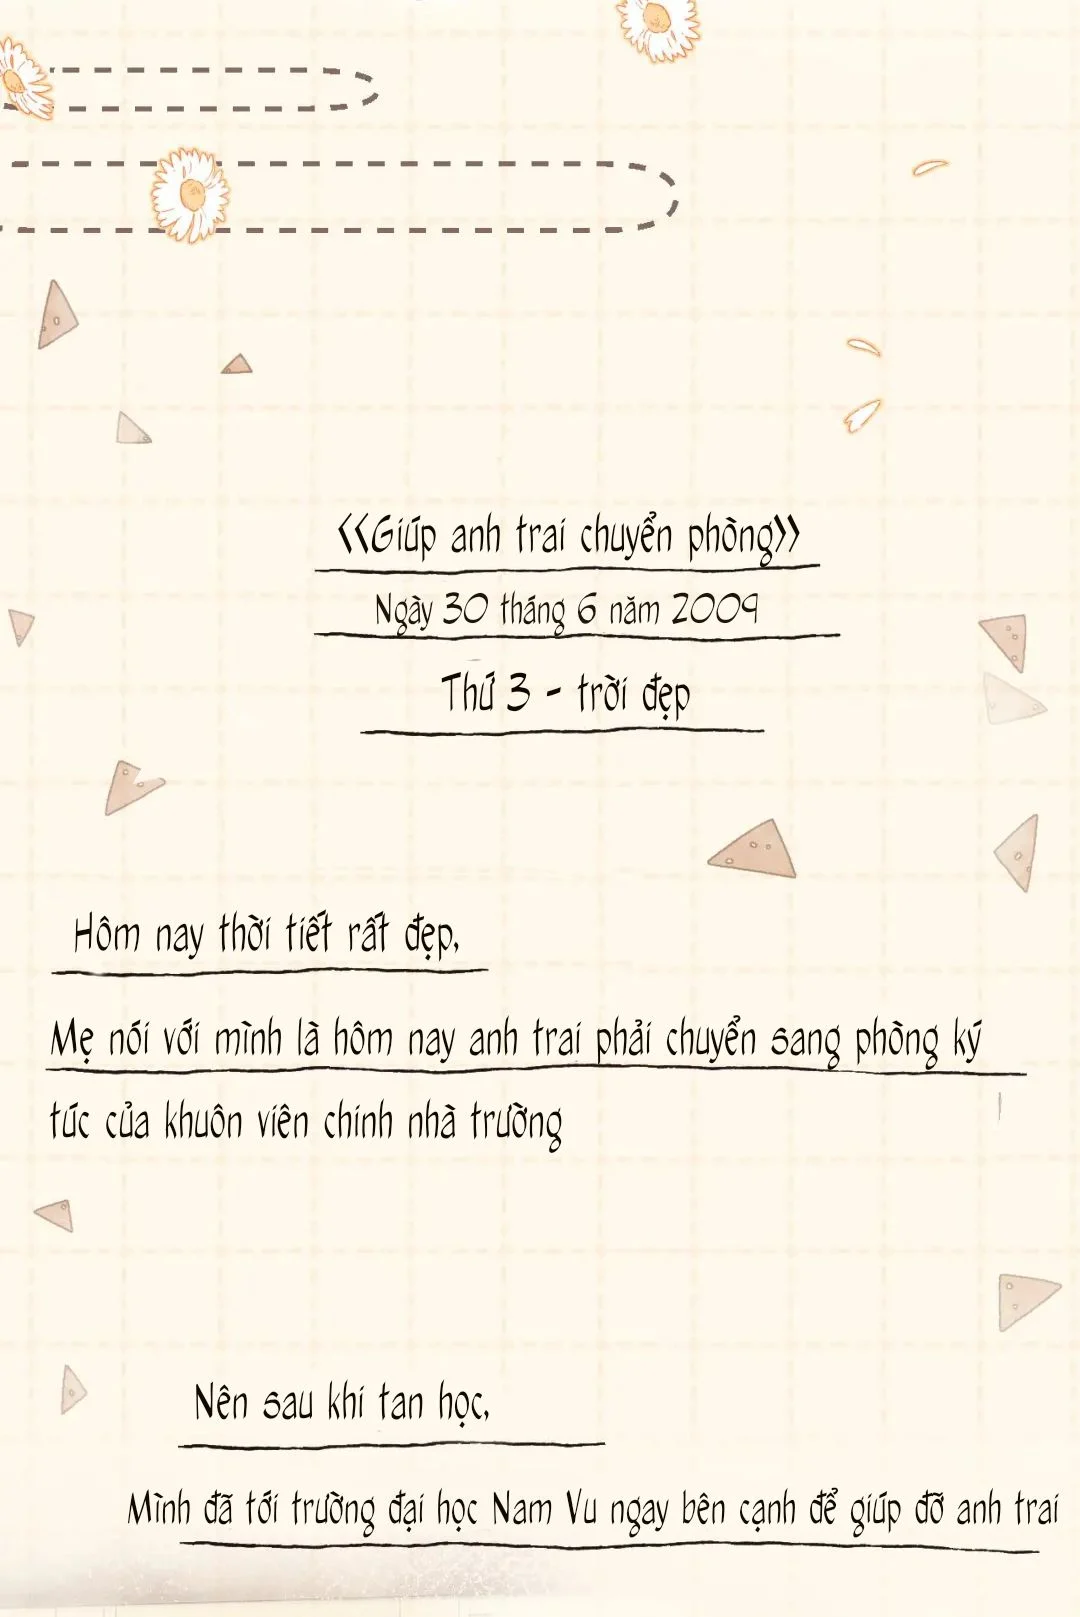 <<Giúp anh trai chuyển phòng>>
Ngày 30 tháng 6 năm 2009
Thứ 3 - trời đẹp
Hôm nay thời tiết rất đẹp,
Mẹ nói với mình là hôm nay anh trai phải chuyển sang phòng ký
túc của khuôn viên chính nhà trường
Nên sau khi tan học,
Mình đã tới trường đại học Nam Vu ngay bên cạnh để giúp đỡ anh trai